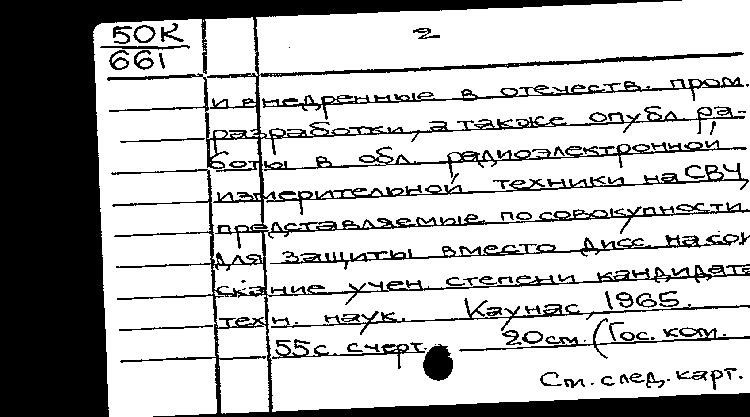 50К
661
2
и внедренные в отечеств. пром.
разработки, а также опубл. ра-
боты в обл. радиоэлектронной
измерительной техники на СВЧ,
представляемые по совокупности
для защиты вместо дисс. на сои
скание учен. степени кандидата
техн. наук. Каунас, 1965.
55с. с черт. 20см. (Гос. ком.
См. след. карт.